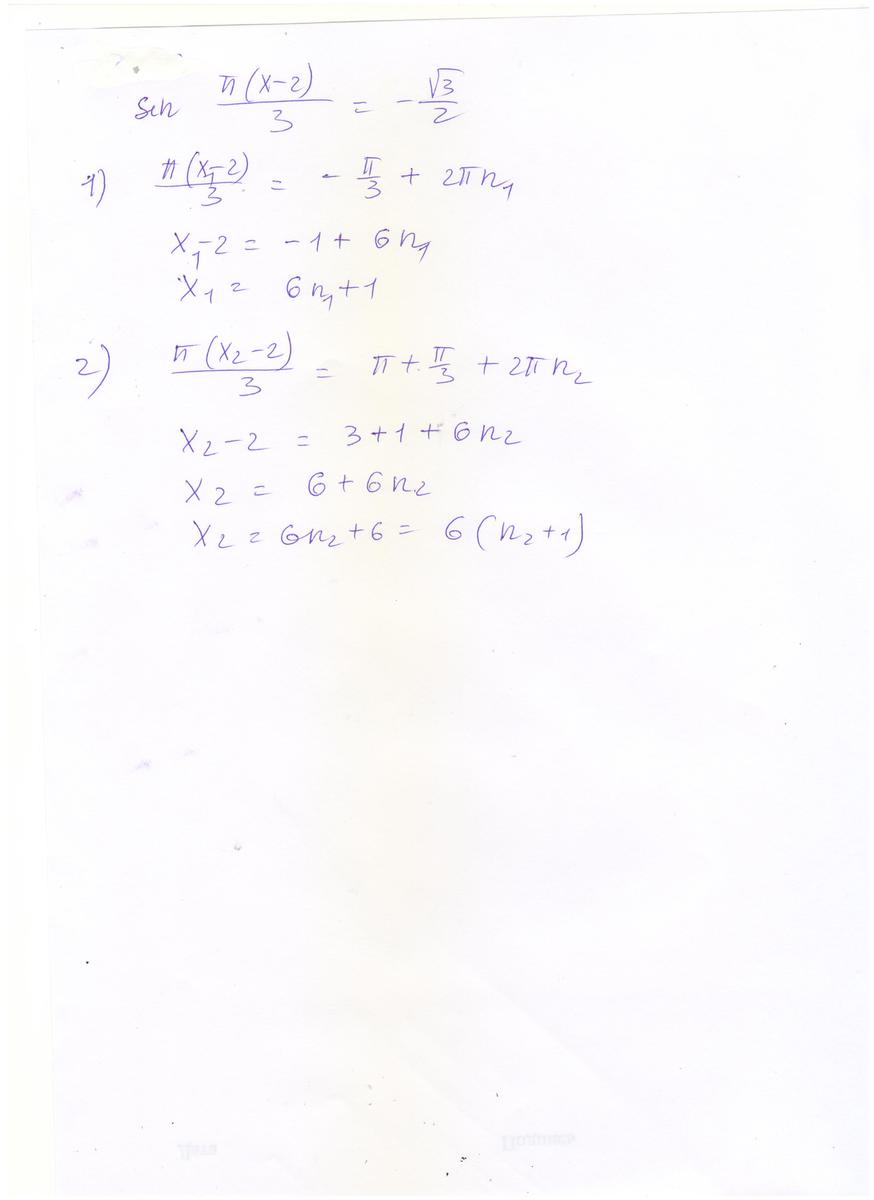 sin π(x-2)/3 = -√3/2
1) π(x₁-2)/3 = -π/3 + 2πn₁
x₁-2 = -1 + 6n₁
x₁ = 6n₁+1
2) π(x₂-2)/3 = π + π/3 + 2πn₂
x₂-2 = 3+1+6n₂
x₂ = 6+6n₂
x₂ = 6n₂+6 = 6(n₂+1)
Дата Подпись